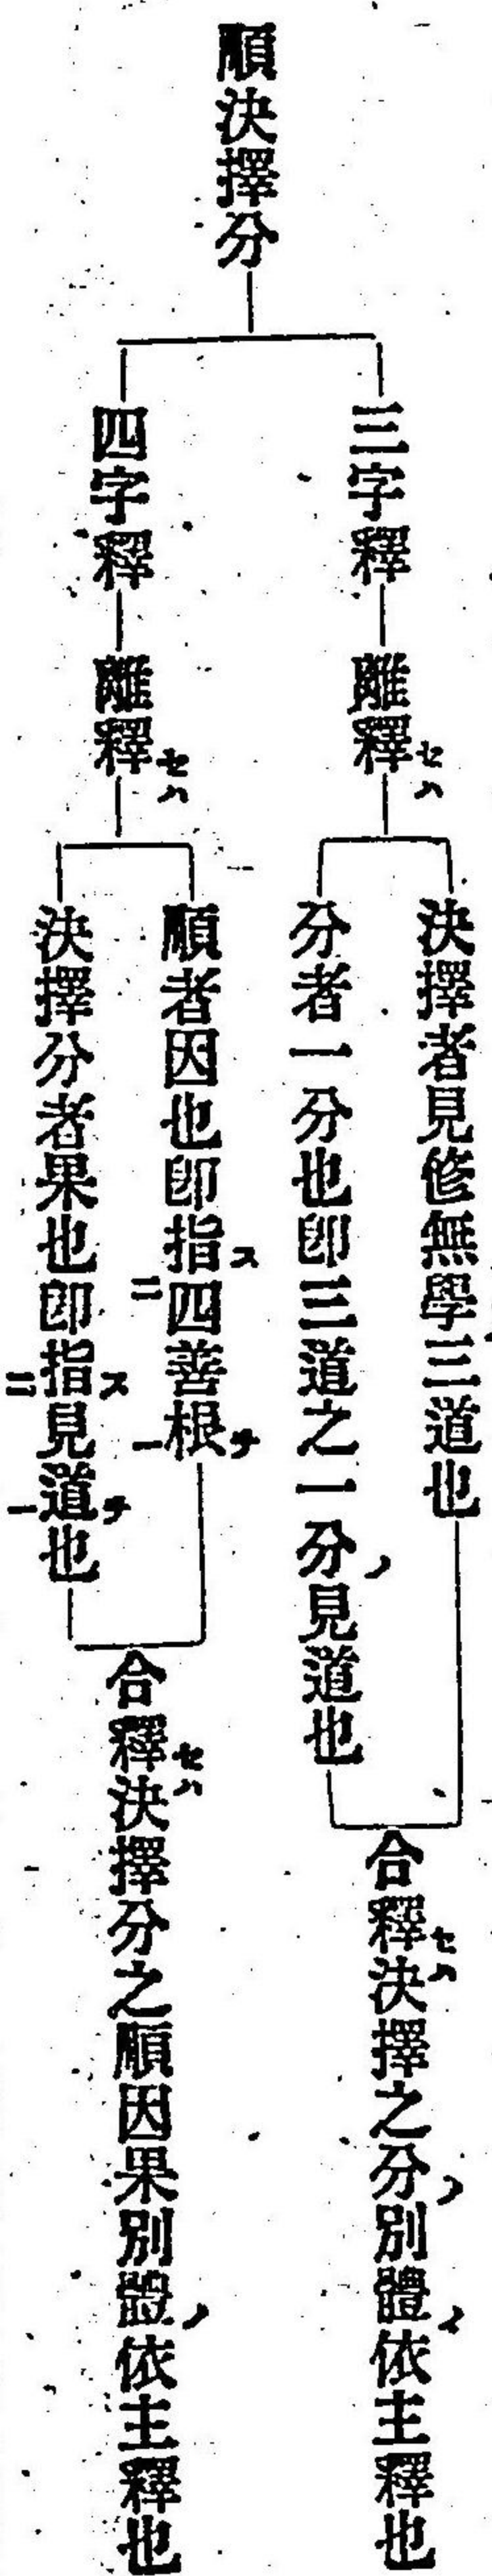 順決擇分
三字釋
離釋セハ
決擇者見修無學三道也
分者一分也卽三道之一分ノ見道也
合釋セハ決擇之分ノ別體ノ依主釋也
四字釋
離釋セハ
順者因也卽指ス二四善根一チ
決擇分者果也卽指ス二見道一チ也
合釋セハ決擇分之順因果別體ノ依主釋也